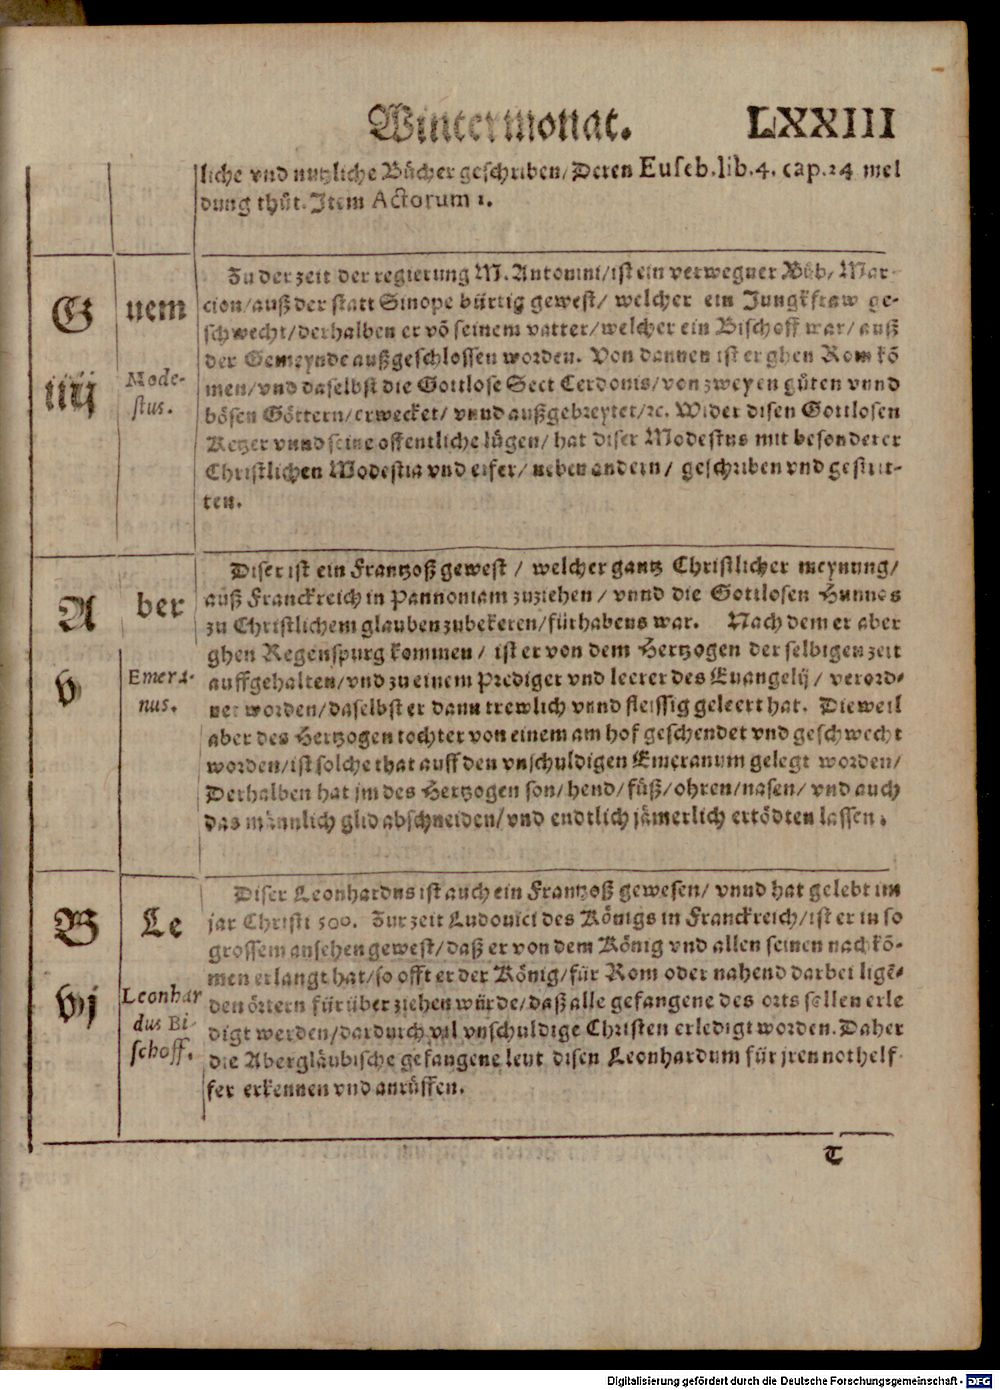 Wintermonat. LXXIII
liche vnd nutzliche Bücher geschriben/ Deren Euseb.lib.4. cap.24 mel
dung thůt. Item Actorum 1.
G
iiij
nem
Mode-
stus.
Zu der zeit der regierung M. Antonini/ ist ein verwegner Bůb/ Mar-
cion/ auß der statt Sinope bürtig gewest/ welcher ein Jungkfraw ge-
schwecht/ derhalben er võ seinem vatter/ welcher ein Bischoff war/ auß
der Gemeynde außgeschlossen worden. Von dannen ist er ghen Rom kõ
men/ vnd daselbst die Gottlose Sect Cerdonis/ von zweyen gůten vnnd
bösen Göttern/ erwecket/ vnnd außgebreytet/ ꝛc. Wider disen Gottlosen
Ketzer vnnd seine offentliche lügen/ hat diser Modestus mit besonderer
Christlichen Modestia vnd eifer/ neben andern/ geschriben vnd gestrit-
ten.
A
v
ber
Emera-
nus.
Diser ist ein Frantzoß gewest / welcher gantz Christlicher meynung/
auß Franckreich in Pannoniam zuziehen / vnnd die Gottlosen Hunnos
zu Christlichem glauben zubekeren/ fürhabens war. Nach dem er aber
ghen Regenspurg kommen / ist er von dem Hertzogen der selbigen zeit
auffgehalten/ vnd zu einem Prediger vnd leerer des Euangelij / verord-
net worden/ daselbst er dann trewlich vnnd fleissig geleert hat. Dieweil
aber des Hertzogen tochter von einem am hof geschendet vnd geschwecht
worden/ ist solche that auff den vnschuldigen Emeranum gelegt worden/
Derhalben hat jm des Hertzogen son/ hend/ füß/ ohren/ nasen/ vnd auch
das männlich glid abschneiden/ vnd endtlich jämerlich ertödten lassen.
B
vj
Le
Leonhar
dus Bi-
schoff.
Diser Leonhardus ist auch ein Frantzoß gewesen/ vnnd hat gelebt im
jar Christi 500. Zur zeit Ludouici des Königs in Franckreich/ ist er in so
grossem ansehen gewest/ daß er von dem König vnd allen seinen nachkõ-
men erlangt hat/ so offt er der König/ für Rom oder nahend darbei ligẽ-
den örtern fürüber ziehen würde/ daß alle gefangene des orts sollen erle
digt werden/ dardurch vil vnschuldige Christen erledigt worden. Daher
die Abergläubische gefangene leut disen Leonhardum für jren nothelf-
fer erkennen vnd anrůffen.
T
Digitalisierung gefördert durch die Deutsche Forschungsgemeinschaft - DFG